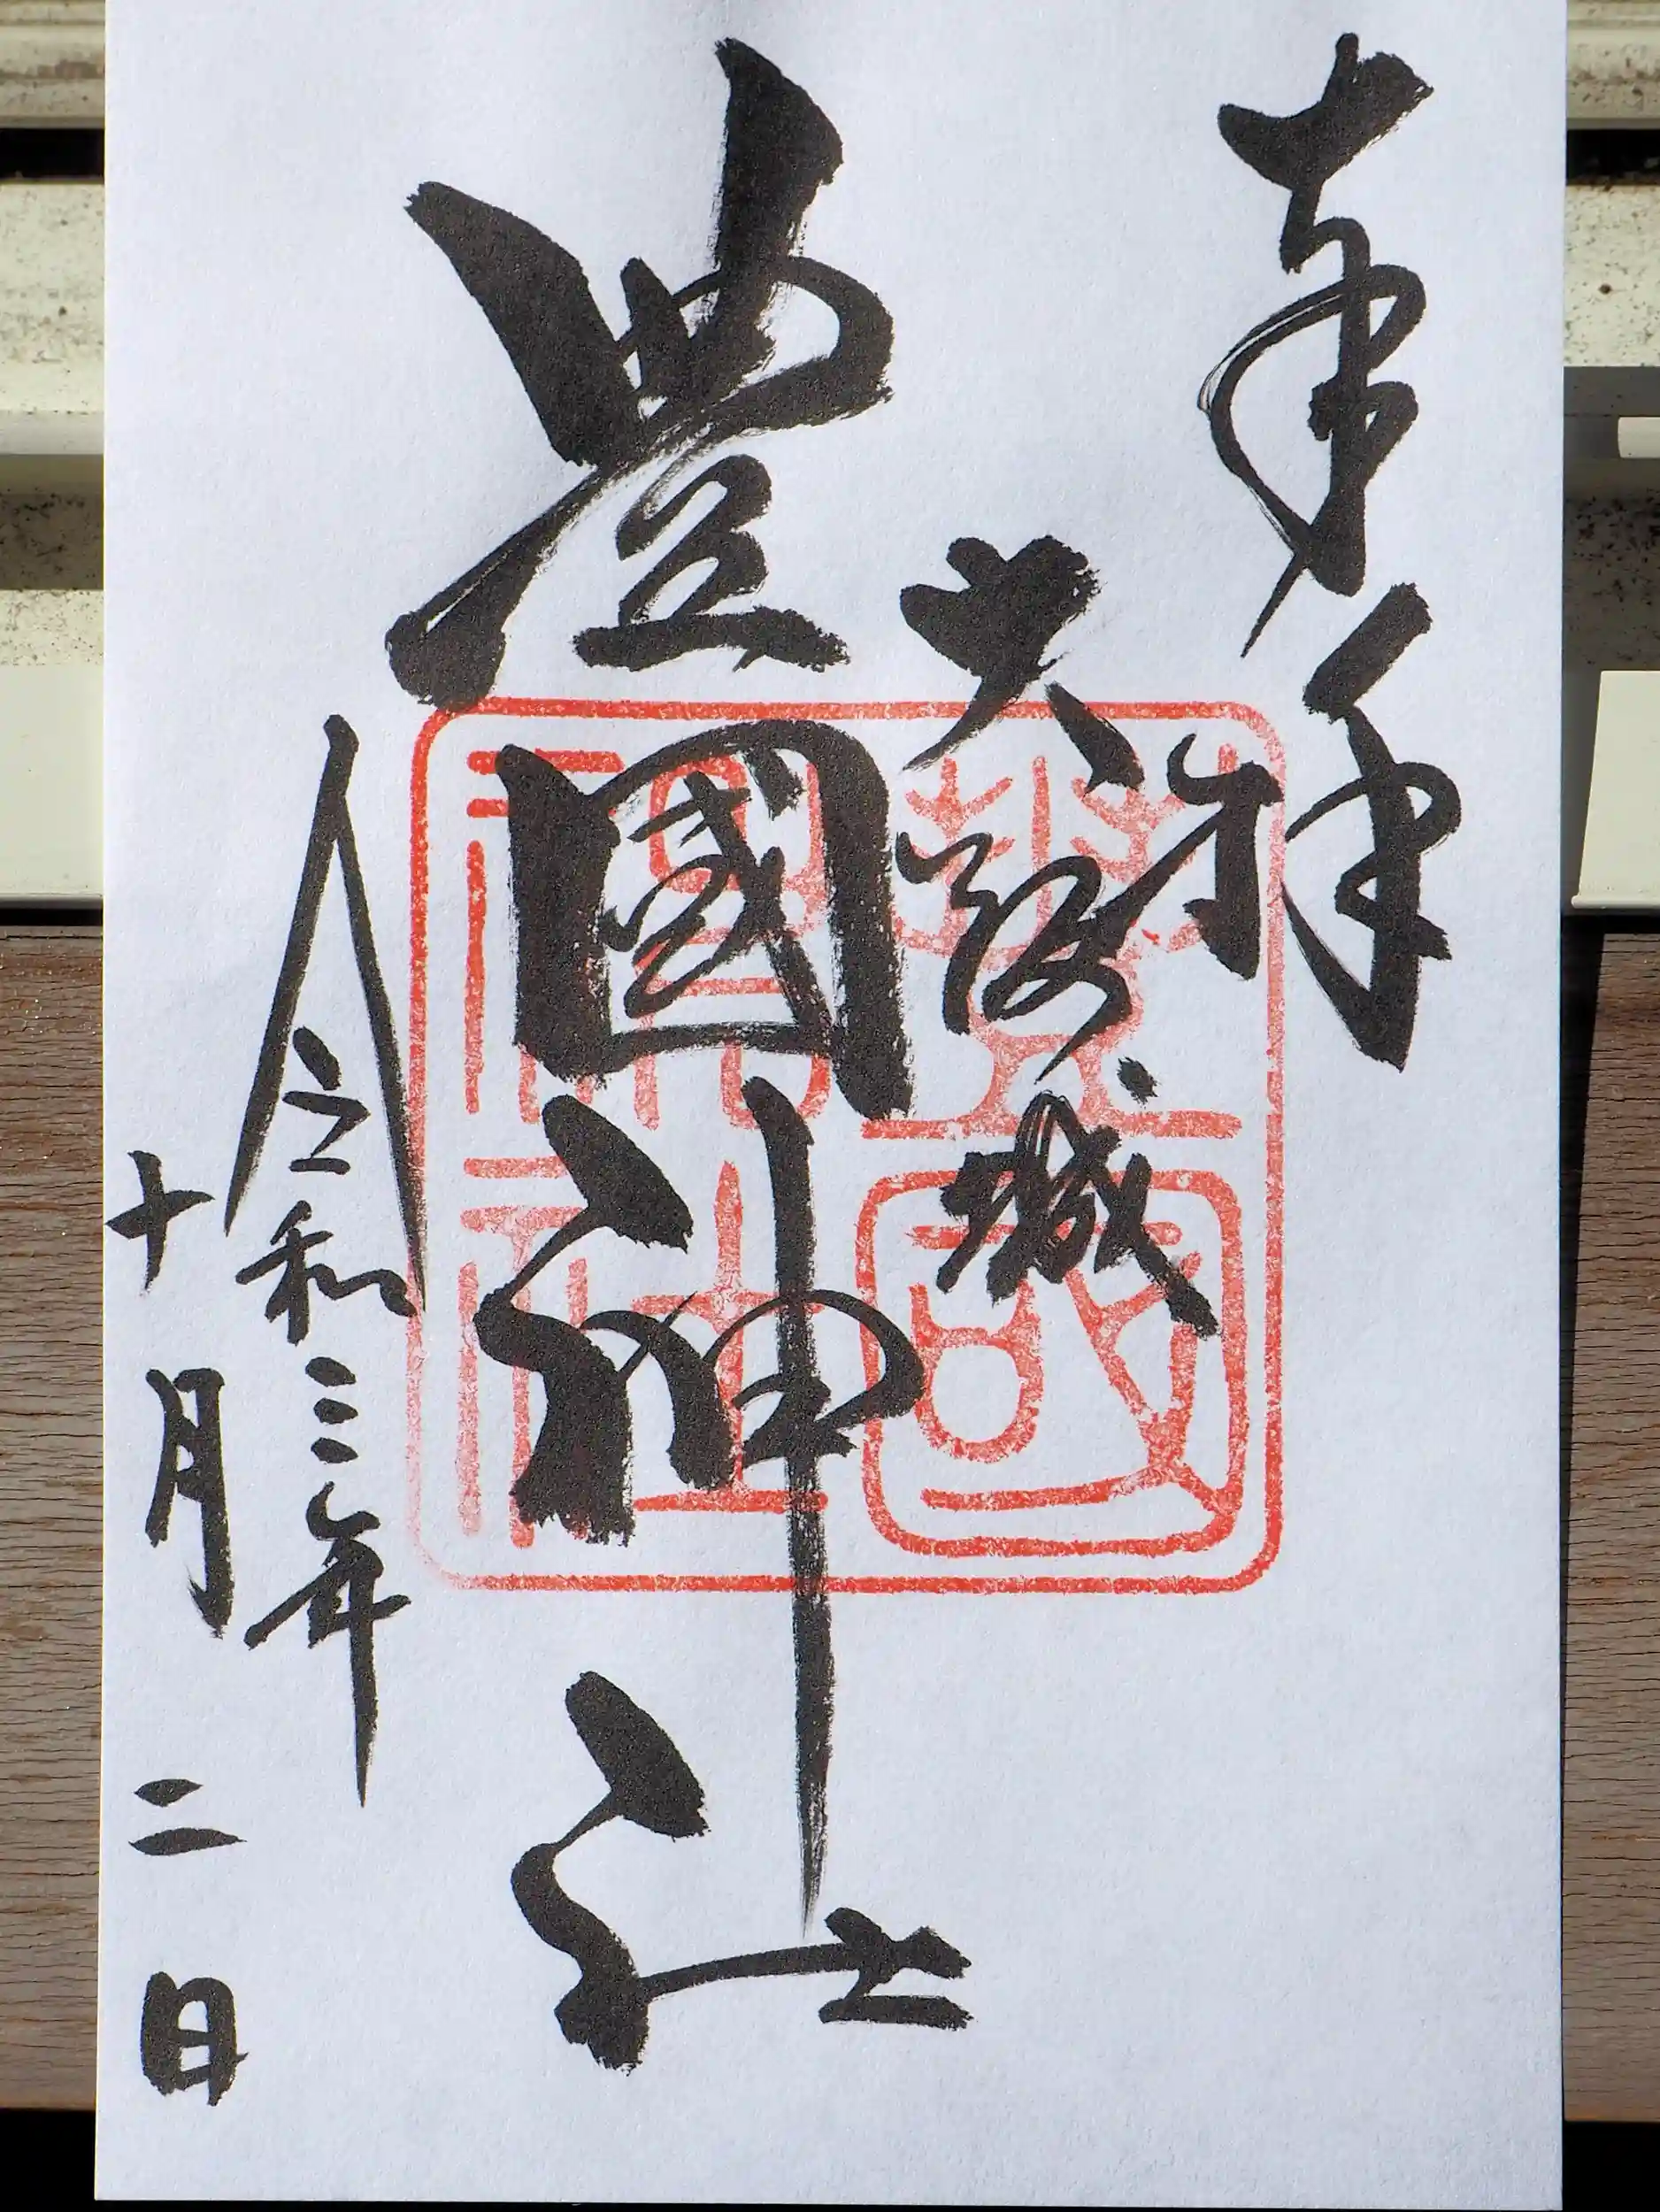 奉拝
大阪城
豊國神社
令和三年
十月二日
豊國神社